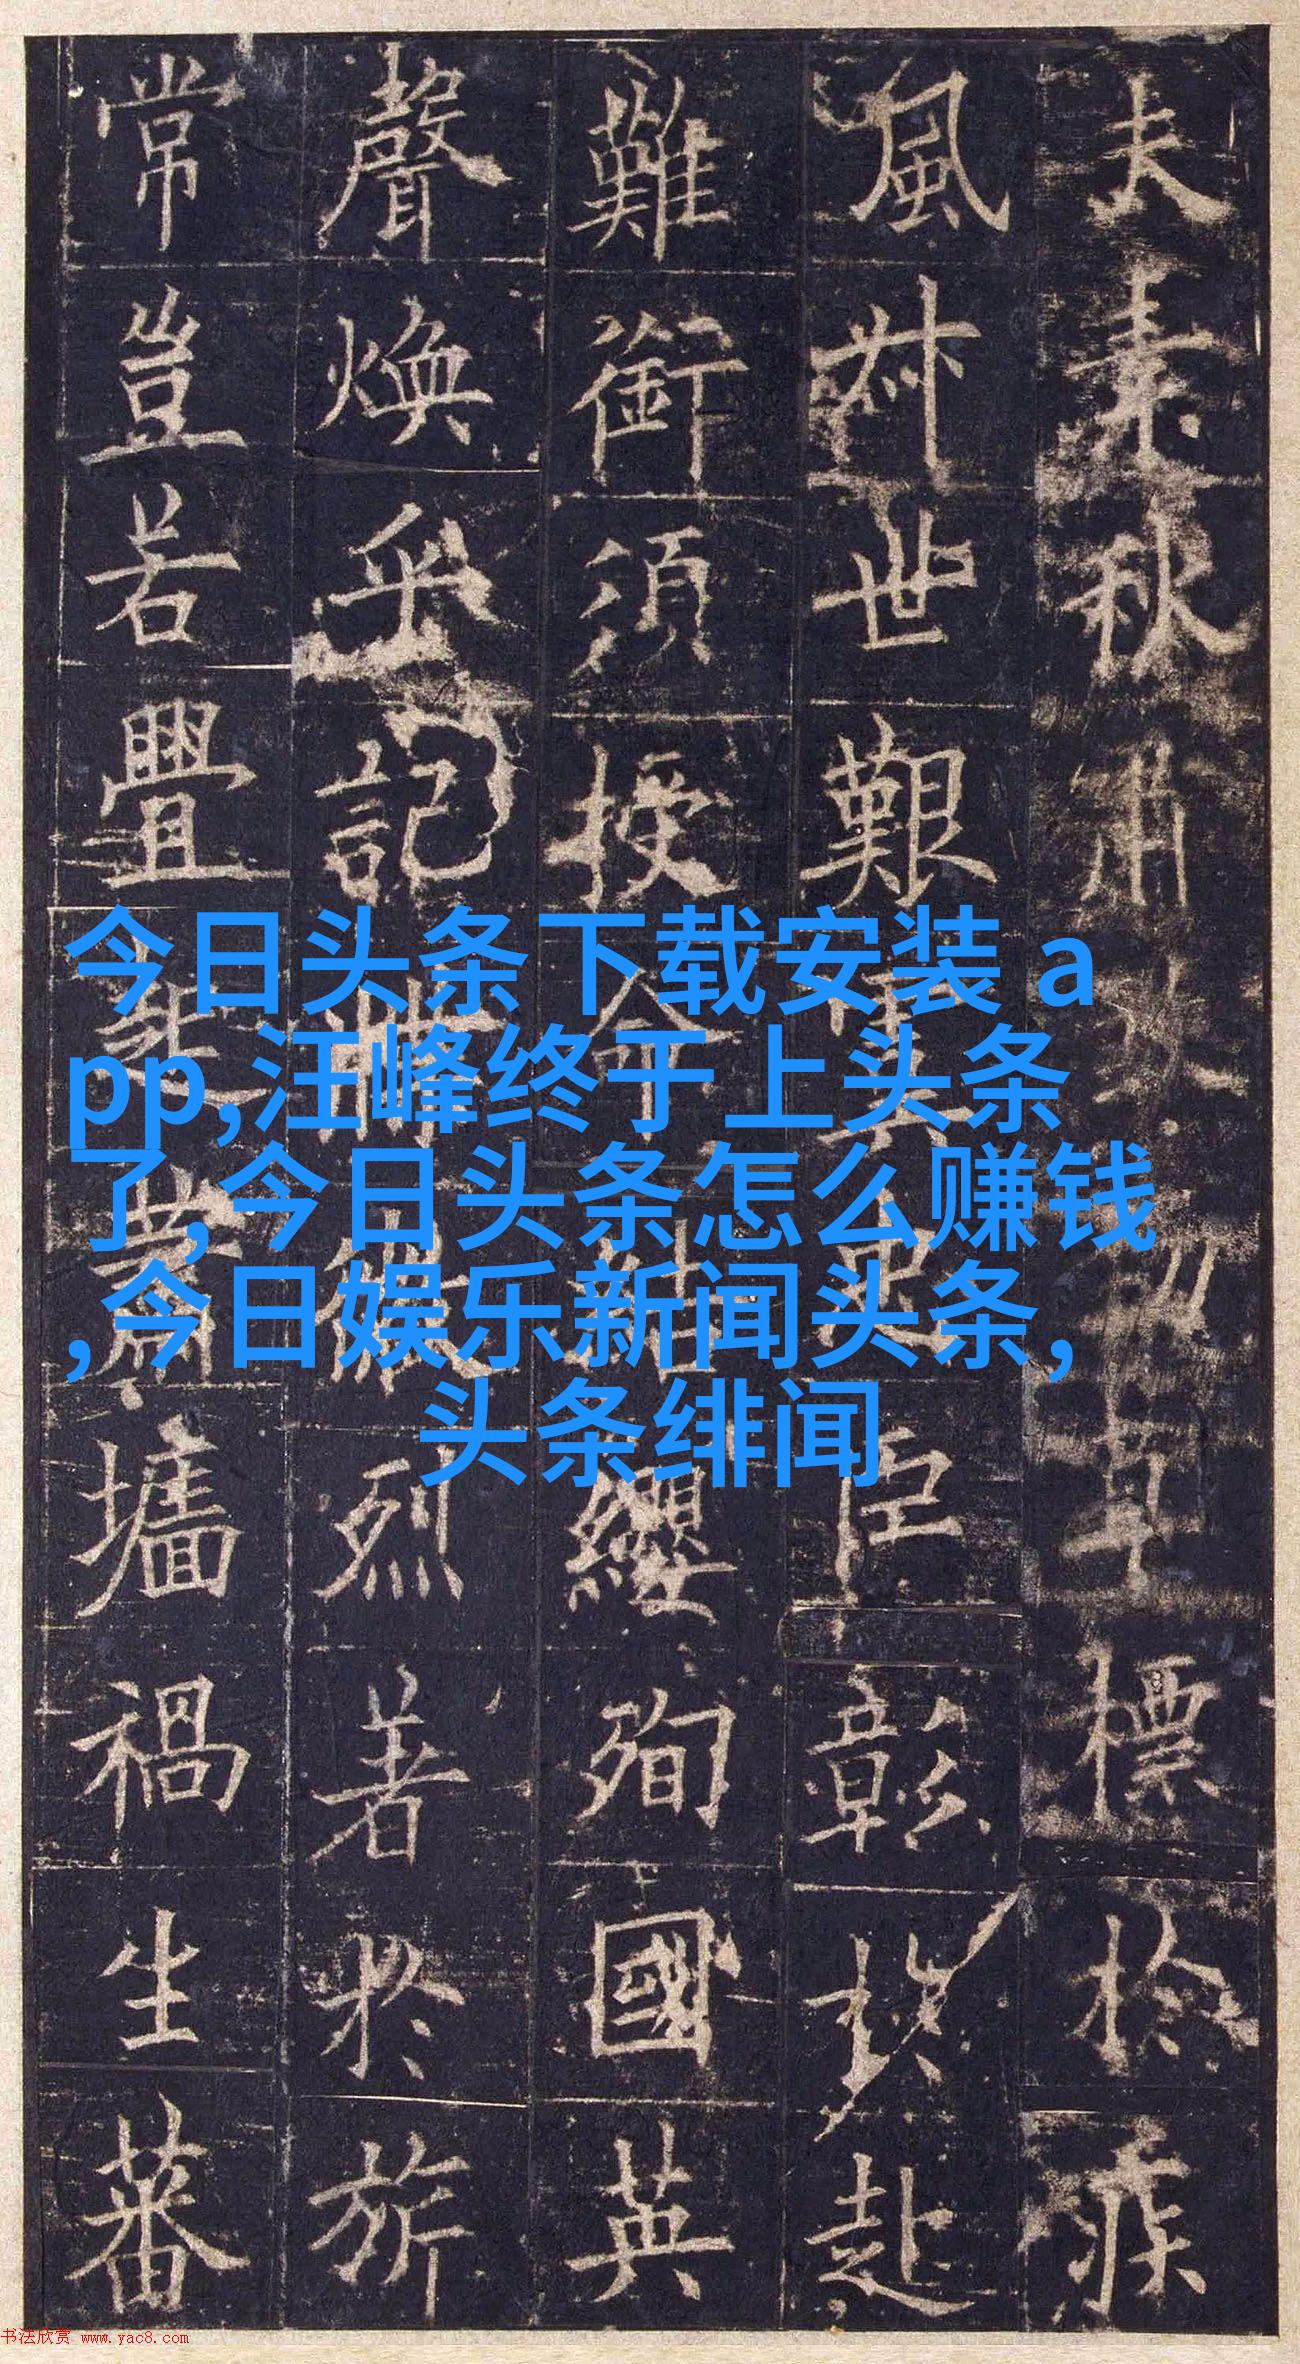 夫素秋肅草標於疾
風叔世艱臣彰於赴
難銜須授命結纓殉國英
聲煥乎記牒烈著於旂
常豈若釁起蕭墻禍生蕃
今日头条下载安装 a
pp,汪峰终于上头条
了,今日头条怎么赚钱
,今日娱乐新闻头条,
头条绯闻
书法欣赏 www.yac8.com